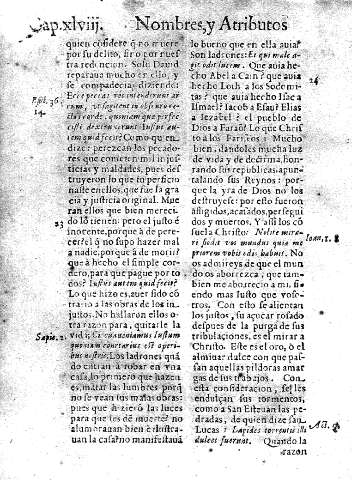 Cap.xlviij. Nombres, y Atributos
quien considere q̃ no muere
por su delito, sino por nuestra
redencion. Solo David
reparaua mucho en ello, y se
compadecia, diziendo:
Psal. 36.
14.
recto corde, quoniam
iustus autem quid fecit? Como quien
dize: perezcan los pecadores
que cometen mil injusticias
y maldades, pues destruyeron
lo que imperio
que fue la gracia
y justicia original. Mueran
ellos que bien merecido
lo tienen: pero el justo è
23
inocente, porque à de perecer?
el q̃ no supo hazer mal
a nadie, porque à de morir?
que à hecho el simple cordero,
para que pague por todos?
Iustus autem quid fecit?
Lo que hizo es, auer sido contrario
a las obras de los injustos.
No hallaron ellos otra
razon para, quitarle la
Sapie. 2.
vida: Circumueniamus Iustum
quoniam contrarius est operibus
nostris. Los ladrones quando
entran a robar en vna
casa, lo primero que hazen
es, matar las lumbres porque
no se vean sus malas obras:
pues que à
para que los dè muerte? no
alumbrauan bien è ilustrauan
la casa? no manifestauā
lo bueno que en ella auia?
Son ladrones: Et qui male agit
odit lucem. Que auia hecho
Abel a Cain? que auia
24
hecho Loth a los Sodomitas?
que auia hecho Isac a
Ismael? Iacob a Esau? Elias
a Iezabel? el pueblo de
Dios a Faraõ? Lo que Christo
a los Fariseos? Mucho
bien, dandoles mucha luz
de vida y de doctrina, honrando
sus republicas, apuntalando
sus Reynos: porque
la yra de Dios no los
destruyese: por esto fueron
afligidos, acusados, perseguidos
y muertos. Y assi los cõsuela
Christo: Nolite mirari
Ioan. 1. 8
si odit vos mundus quia me
priorem vobis odio habuit. No
os admireys de que el mundo
os aborrezca, que tambien
me aborrecio a mi, siendo
mas Iusto que vosotros.
Con esto se alientan
los justos, su açucar rosado
despues de la purga de sus
tribulaciones, es el mirar a
Christo. Este es el oro, ò el
almiuar dulce con que passan
aquellas pildoras amargas
de sus trabajos. Con
esta consideracion, se les
endulçan sus tormentos,
como a San Esteuan las pedradas,
de quien dize san
Act. 7.
Lucas: Lapides torrentis illi
dulces fuerunt. Quando la
razon